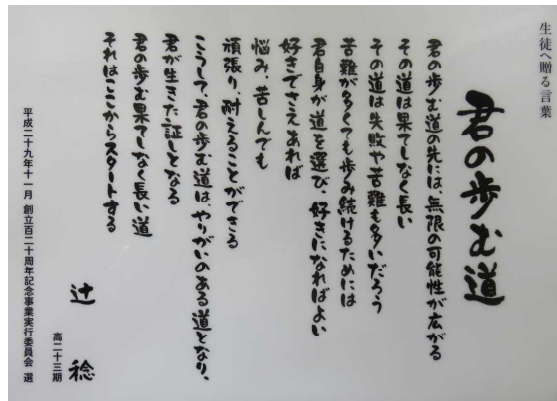 生徒へ贈る言葉
君の歩む道
君の歩む道の先には、無限の可能性が広がる
その道は果てしなく長い
その道は失敗や苦難も多いだろう
苦難が多くても歩み続けるためには
君自身が道を選び、好きになればよい
好きでさえあれば
悩み、苦しんでも
頑張り、耐えることができる
こうして、君の歩む道は、やりがいのある道となり、
君が生きた証しとなる
君の歩む果てしなく長い道
それはここからスタートする
高二十三期
辻 稔
平成二十九年十一月 創立百二十周年記念事業実行委員会 選